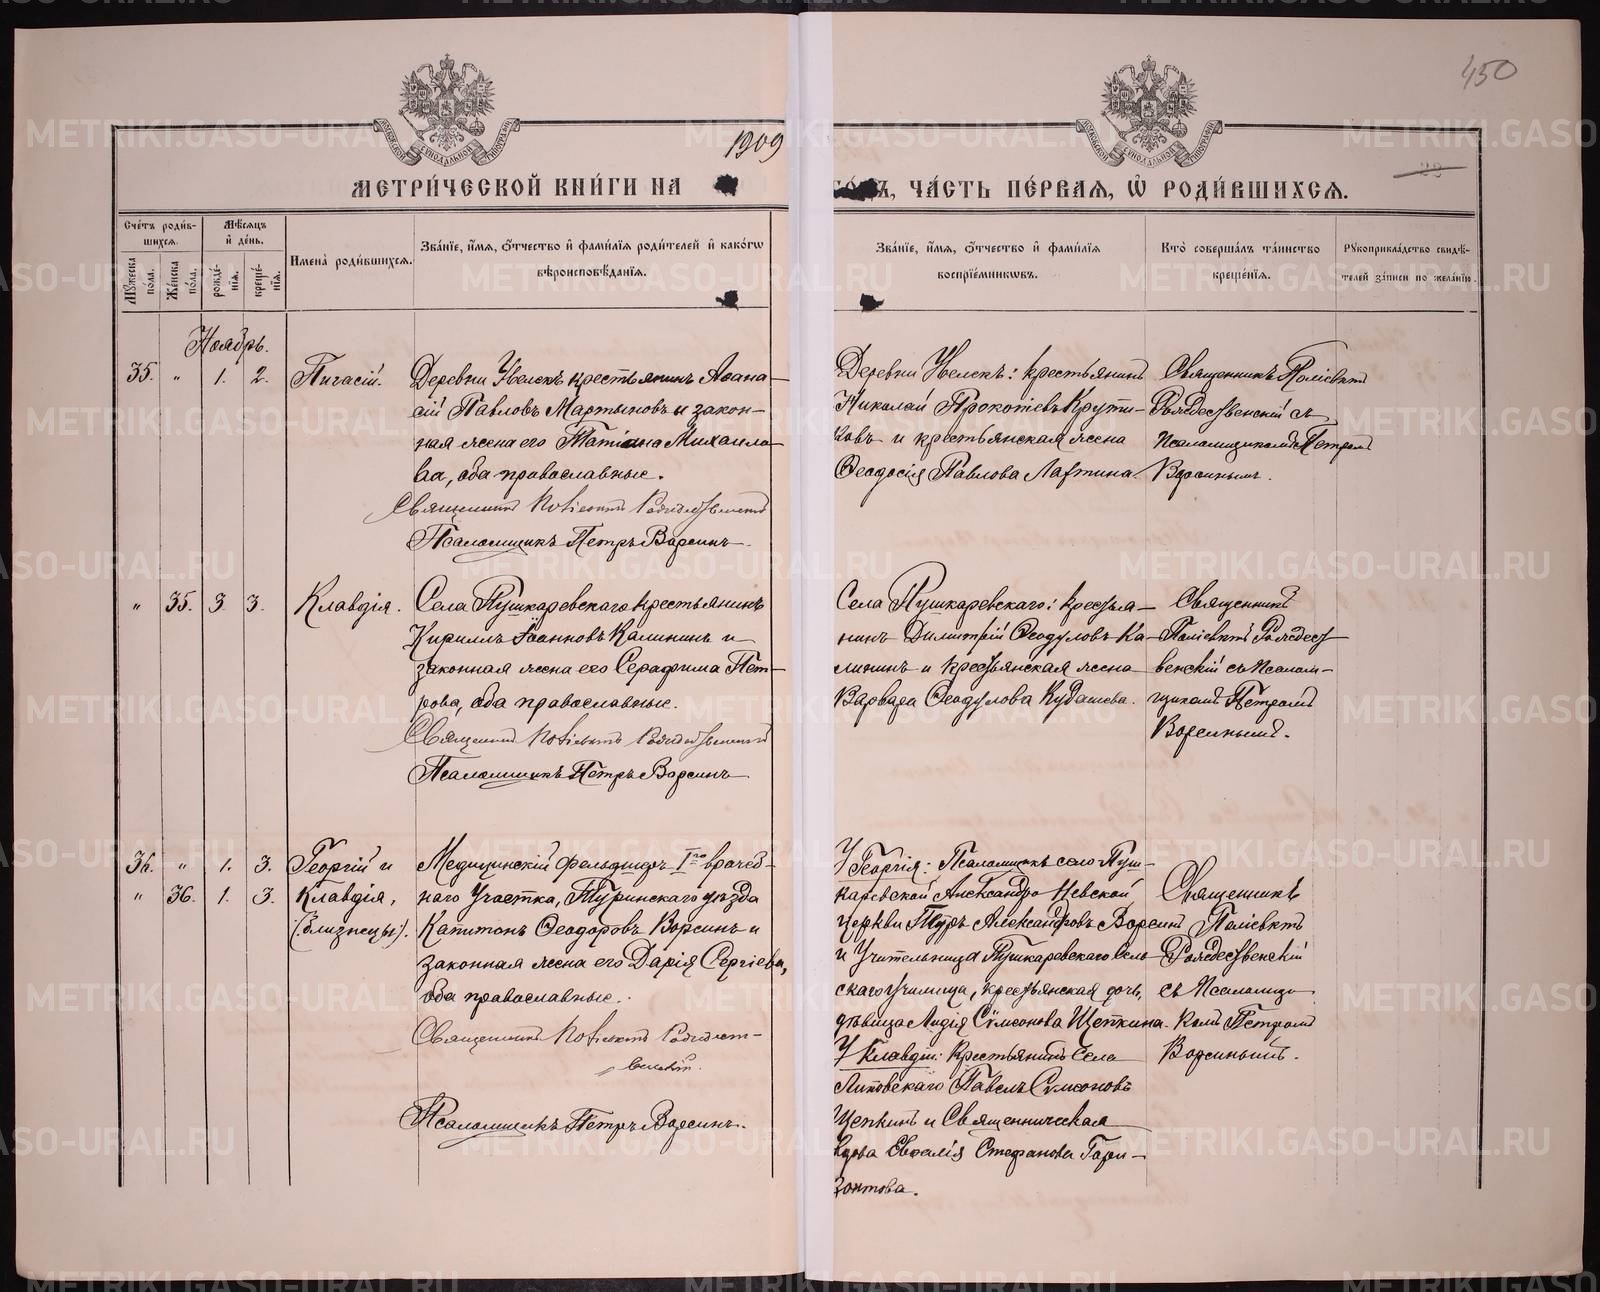 450
1909
МЕТРИ́ЧЕСКОЙ КНИ́ГИ НА
ГО́ДЪ, ЧА́СТЬ ПЕ́РВАЯ, Ѡ҆ РОДИ́ВШИХСЯ.
Сче́тъ роди́в-
шихся.
Мѣ́сяцъ
и҆ де́нь.
Му́жеска
по́ла.
Же́нска
по́ла.
рожде́-
нїя.
креще́-
нїя.
Имена̀ роди́вшихся.
Зва́нїе, и҆́мя, ѻ҆́тчество и҆ фами́лїя роди́телей и҆ како́гѡ
вѣроисповѣ́данїя.
Зва́нїе, и҆́мя, ѻ҆́тчество и҆ фами́лїя
воспрїе́мникѡвъ.
Кто̀ соверша́лъ та́инство
креще́нїя.
Рꙋкоприкла́дство свидѣ́-
телей за́писи по жела́нїю.
Ноябрь.
35. " 1. 2. Пигасій.
Деревни Увелскъ крестьянинъ Аѳана-
сій Павловъ Мартыновъ и закон-
ная жена его Татіана Михаило-
ва, оба православные.
Священникъ Поліевктъ Рождественскій
Псаломщикъ Петръ Ворсинъ
Деревни Увелскъ: крестьянинъ
Николай Прокопіевъ Крути-
ковъ и крестьянская жена
Ѳеодосія Павлова Лаптина.
Священникъ Поліевктъ
Рождественскій съ
псаломщикомъ Петромъ
Ворсинымъ.
" 35. 3. 3. Клавдія.
Села Пушкаревскаго крестьянинъ
Кириллъ Іоанновъ Калининъ и
законная жена его Серафима Пет-
рова, оба православные.
Священникъ Поліевктъ Рождественскій
Псаломщикъ Петръ Ворсинъ
Села Пушкаревскаго: крестья-
нинъ Димитрій Ѳеодуловъ Ка-
лининъ и крестьянская жена
Варвара Ѳеодулова Кубашева.
Священникъ
Поліевктъ Рождест
венскій съ псалом-
щикомъ Петромъ
Ворсинымъ.
36. " 1. 3. Георгій и
" 36. 1. 3. Клавдія,
(близнецы).
Медицинскій фельдшеръ Iго врачеб-
наго участка, Туринскаго уѣзда
Капитонъ Ѳеодоровъ Ворсинъ и
законная жена его Дарія Сергіева,
оба православные.
Священникъ Поліевктъ Рождест-
венскій.
Псаломщикъ Петръ Ворсинъ.
У Георгія: Псаломщикъ село Пуш-
каревской Александро Невской
церкви Петръ Александровъ Ворсинъ
и учительница Пушкаревскаго сель
скаго училища, крестьянская дочь,
дѣвица Лидія Сѵмеонова Щепкина.
У Клавдіи: Крестьянинъ села
Липовскаго Павелъ Сѵмеоновъ
Щепкинъ и Священническая
вдова Евѳалія Стефанова Гори-
зонтова.
Священникъ
Поліевктъ
Рождественскій
съ Псаломщи
комъ Петромъ
Ворсинымъ.